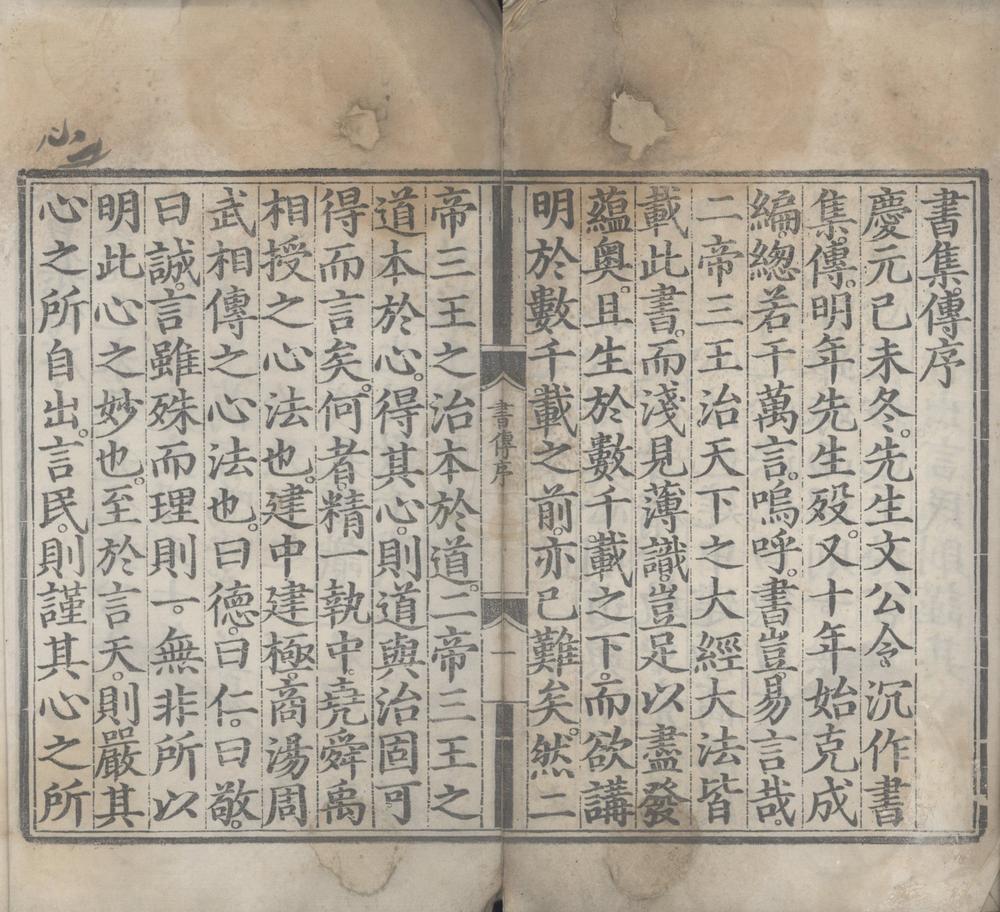 書集傳序
慶元己未冬。先生文公令沉作書
集傳。明年先生歿。又十年始克成
編。緫若干萬言。嗚呼。書豈易言哉。
二帝三王治天下之大經大法皆
載此書。而淺見薄識。豈足以盡發
蘊奥。且生於數千載之下。而欲講
明於數千載之前。亦已難矣。然二
書傳序
一
帝三王之治本於道。二帝三王之
道本於心。得其心。則道與治固可
得而言矣。何者。精一執中。堯舜禹
相授之心法也。建中建極。商湯周
武相傳之心法也。曰德。曰仁。曰敬。
曰誠。言雖殊而理則一。無非所以
明此心之妙也。至於言天。則嚴其
心之所自出。言民。則謹其心之所